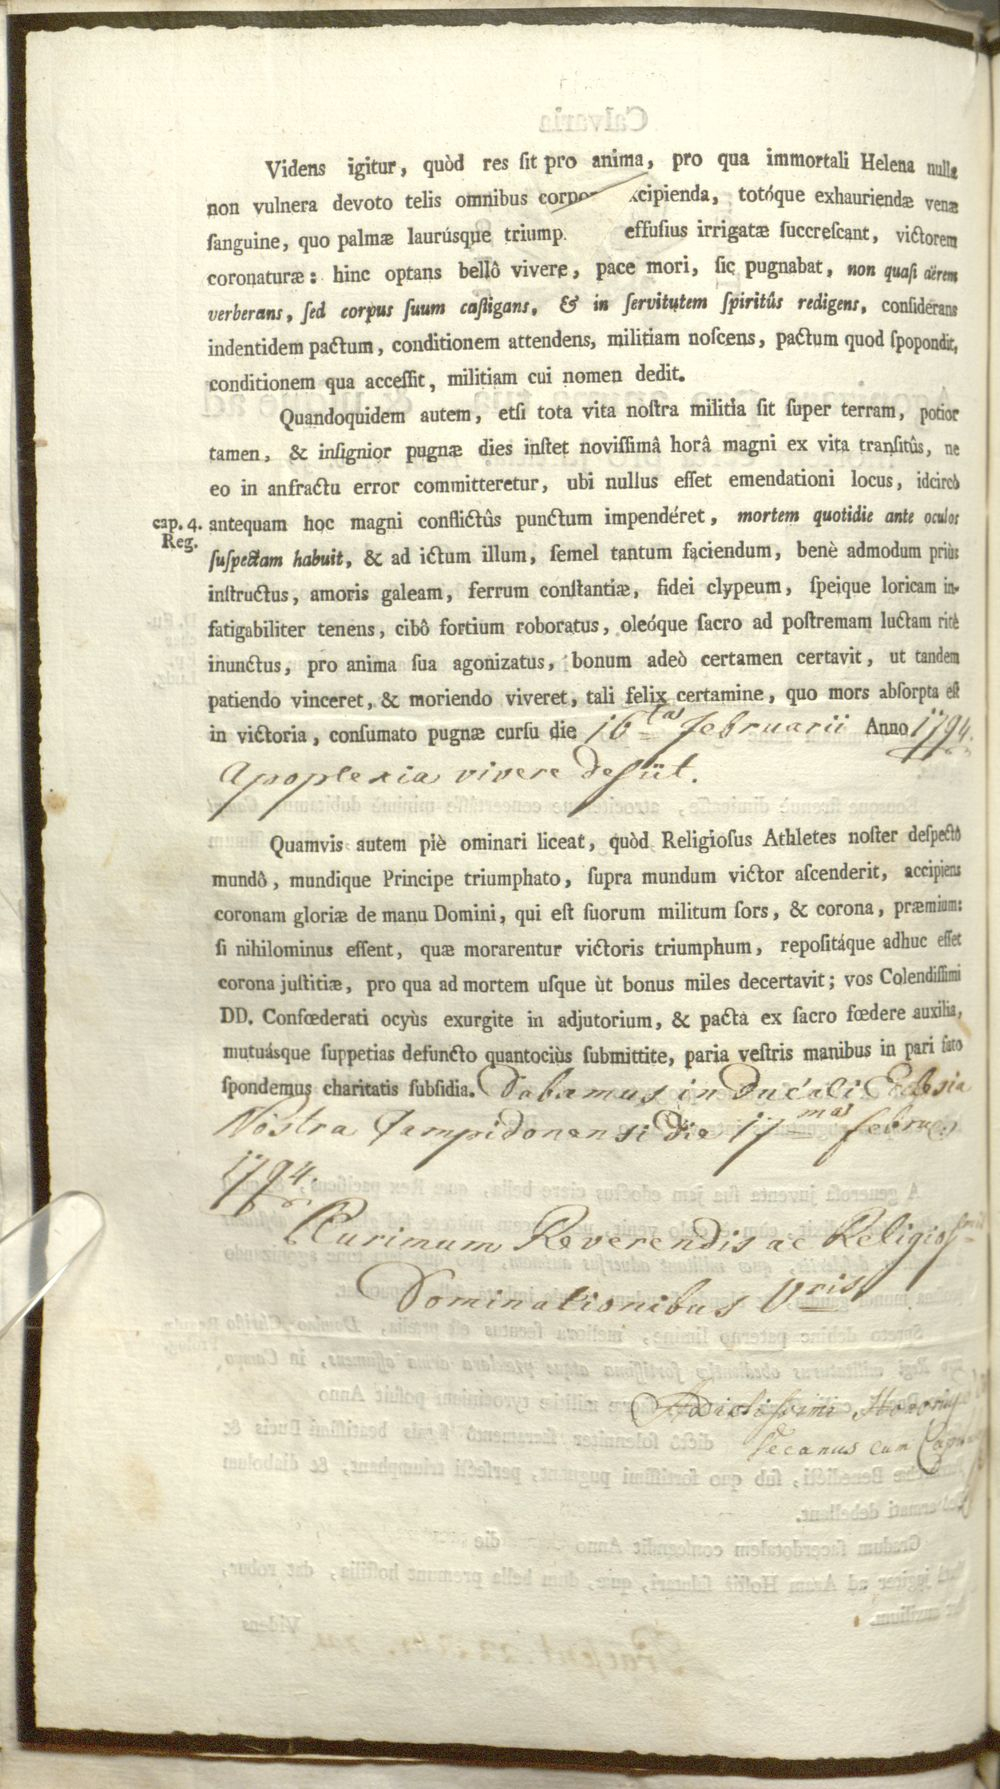 Videns igitur, quòd res ſit pro anima, pro qua immortali Helena nulla
non vulnera devoto telis omnibus corpor xcipienda, totóque exhauriendæ venæ
ſanguine, quo palmæ laurúsque triump. effuſius irrigatæ ſuccreſcant, victorem
coronaturæ: hinc optans bellô vivere, pace mori, ſic pugnabat, non quaſi aërem
verberans, ſed corpus ſuum caſtigans, & in ſervitutem ſpiritûs redigens, conſiderans
indentidem pactum, conditionem attendens, militiam noſcens, pactum quod ſpopondit,
conditionem qua acceſſit, militiam cui nomen dedit.
Quandoquidem autem, etſi tota vita noſtra militia ſit ſuper terram, potior
tamen, & inſignior pugnæ dies inſtet noviſſimâ horâ magni ex vita tranſitûs, ne
eo in anfractu error committeretur, ubi nullus eſſet emendationi locus, idcircò
cap. 4. antequam hoc magni conflictûs punctum impendéret, mortem quotidie ante oculos
Reg. ſuſpectam habuit, & ad ictum illum, ſemel tantum faciendum, benè admodum priùs
inſtructus, amoris galeam, ferrum conſtantiæ, fidei clypeum, ſpeique loricam in-
fatigabiliter tenens, cibô fortium roboratus, oleóque ſacro ad poſtremam luctam ritè
inunctus, pro anima ſua agonizatus, bonum adeò certamen certavit, ut tandem
patiendo vinceret, & moriendo viveret, tali felix certamine, quo mors abſorpta eſt
in victoria, conſumato pugnæ curſu die 16ta Februarii Anno 1794.
Apoplexia vivere desiit.
Quamvis autem piè ominari liceat, quòd Religioſus Athletes noſter deſpectô
mundô, mundique Principe triumphato, ſupra mundum victor aſcenderit, accipiens
coronam gloriæ de manu Domini, qui eſt ſuorum militum ſors, & corona, præmium:
ſi nihilominus eſſent, quæ morarentur victoris triumphum, repoſitáque adhuc eſſet
corona juſtitiæ, pro qua ad mortem uſque ùt bonus miles decertavit; vos Colendiſſimi
DD. Confœderati ocyùs exurgite in adjutorium, & pacta ex ſacro fœdere auxilia,
mutuásque ſuppetias defuncto quantociùs ſubmittite, paria veſtris manibus in pari fato
ſpondemus charitatis ſubſidia. Dabamus in Ducali Ecclesia
Nostra Campidonensi die 17ma Febru:
1794.
Plurimum Reverendis ac Religios
Dominationibus Vris
Addictissimi Honorius
Decanus cum